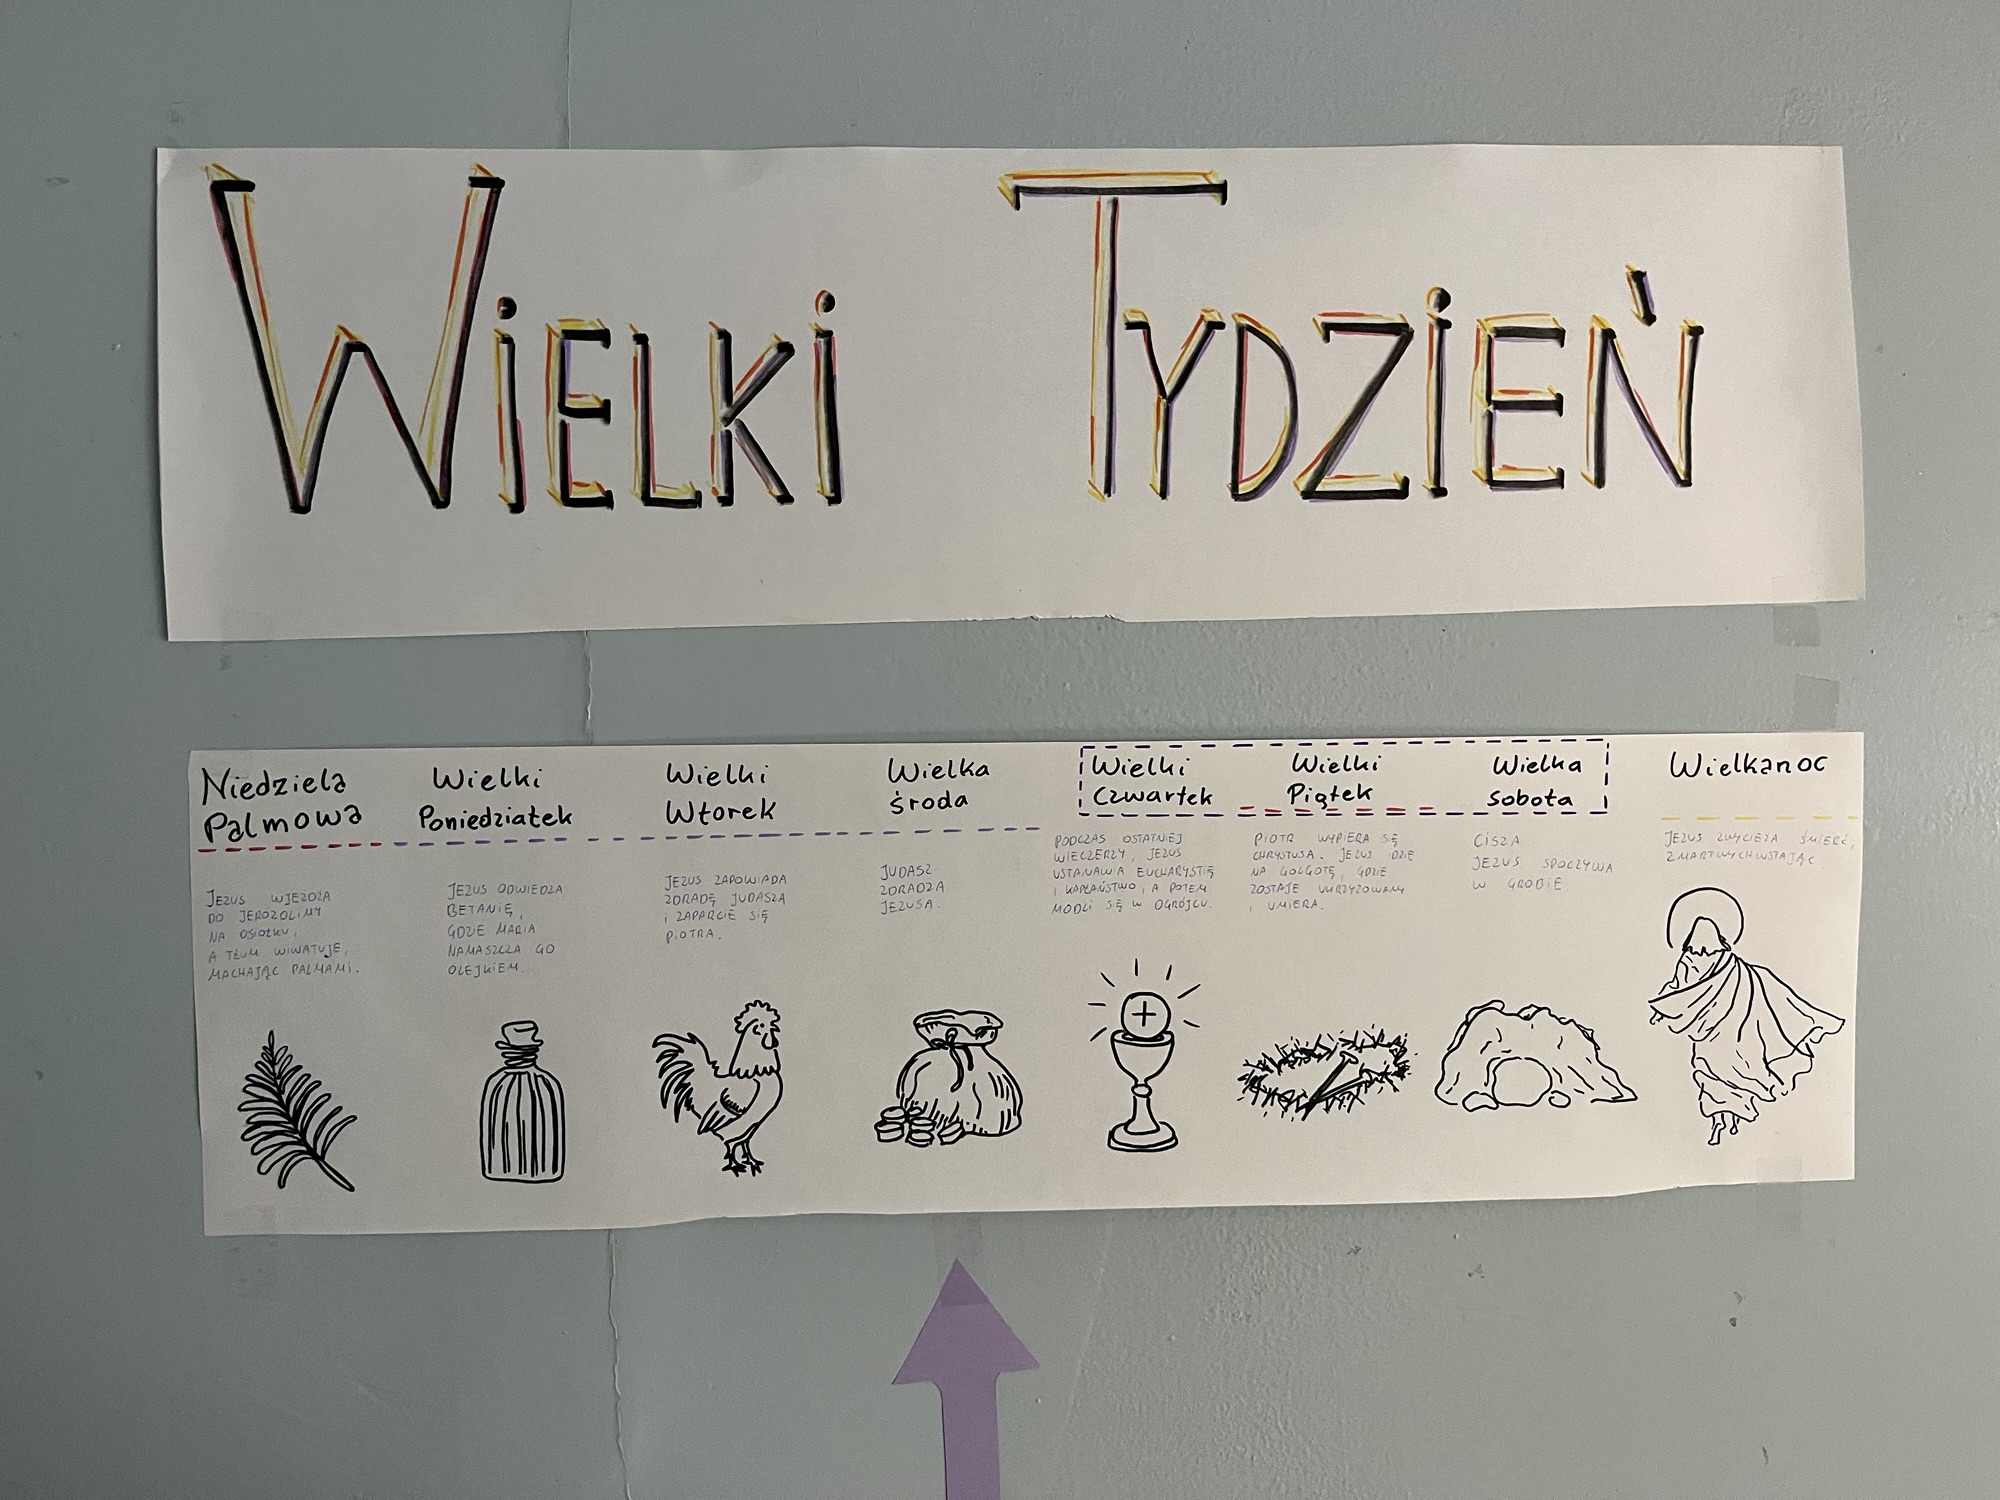 WIELKI TYDZIEŃ
Niedziela
Palmowa
JEZUS WJEŻDŻA
DO JEROZOLIMY
NA OSIOŁKU,
A TŁUM WIWATUJE,
MACHAJĄC PALMAMI.
Wielki
Poniedziałek
JEZUS ODWIEDZA
BETANIĘ,
GDZIE MARIA
NAMASZCZA GO
OLEJKIEM.
Wielki
Wtorek
JEZUS ZAPOWIADA
ZDRADĘ JUDASZA
i ZAPARCIE SIĘ
PIOTRA.
Wielka
środa
JUDASZ
ZDRADZA
JEZUSA.
Wielki
Czwartek
PODCZAS OSTATNIEJ
WIECZERZY, JEZUS
USTANAWIA EUCHARYSTIĘ
I KAPŁAŃSTWO, A POTEM
MODLI SIĘ W OGRÓJCU.
Wielki
Piątek
PIOTR WYPIERA SIĘ
CHRYSTUSA. JEZUS IDZIE
NA GOLGOTĘ, GDZIE
ZOSTAJE UKRZYŻOWANY
I UMIERA.
Wielka
sobota
CISZA
JEZUS SPOCZYWA
W GROBIE
Wielkanoc
JEZUS ZWYCIĘŻA ŚMIERĆ,
ZMARTWYCHWSTAJĄC.